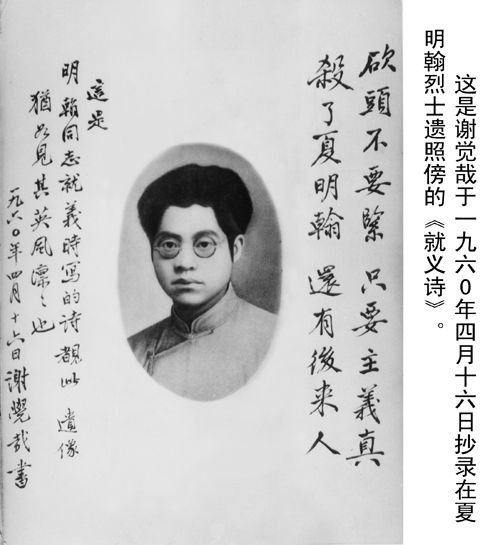 这是谢觉哉于一九六0年四月十六日抄录在夏
明翰烈士遗照傍的《就义诗》。
砍頭不要緊 只要主義真
殺了夏明翰 還有後來人
這是
明翰同志就義時寫的詩 覩此 遺像
猶如見其英風凛々也
一九六〇年四月十六日謝覺哉書